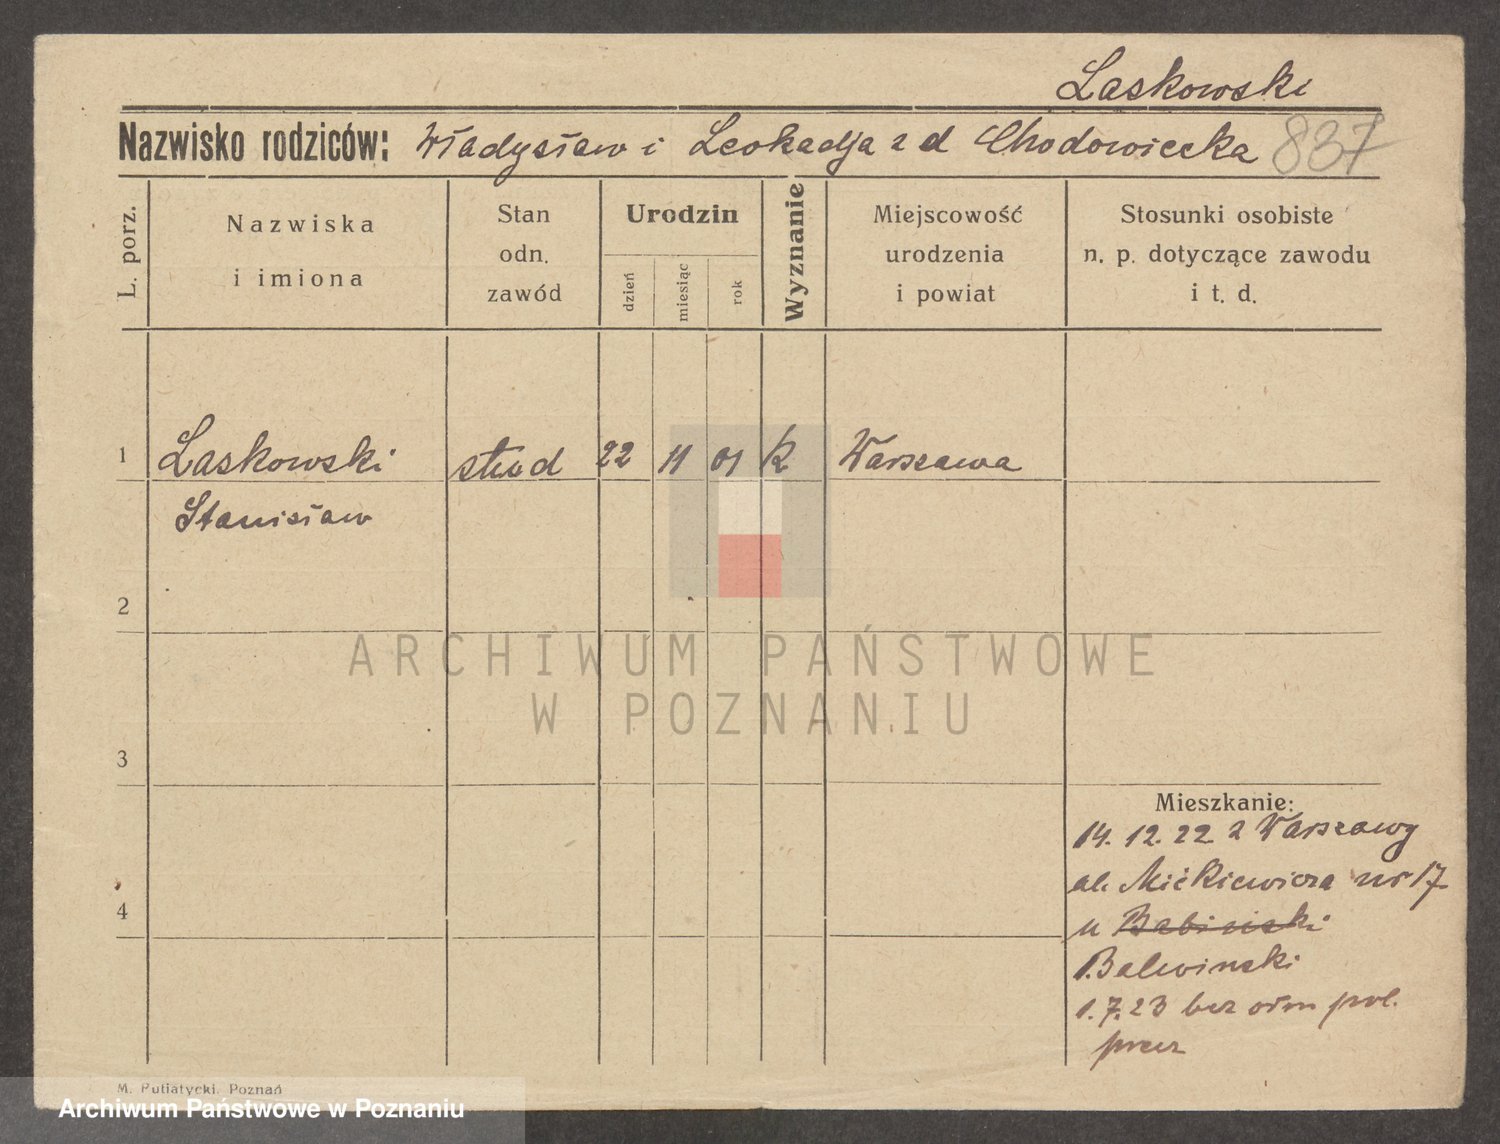 Laskowski
Nazwisko rodziców: Władysław i Leokadja z d Chodowiecka 837
L. porz.
Nazwiska
i imiona
Stan
odn.
zawód
Urodzin
dzień
miesiąc
rok
Wyznanie
Miejscowość
urodzenia
i powiat
Stosunki osobiste
n. p. dotyczące zawodu
i t. d.
1 Laskowski stud 22 11 01 K Warszawa
Stanisław
2
ARCHIWUM PAŃSTWOWE
W POZNANIU
3
Mieszkanie:
14. 12. 22 z Warszawy
ul. Mickiewicza nr 17
4
u
Balwinski
1.7.23 bez odm pol.
przez
M. Putiatycki, Poznań
Archiwum Państwowe w Poznaniu